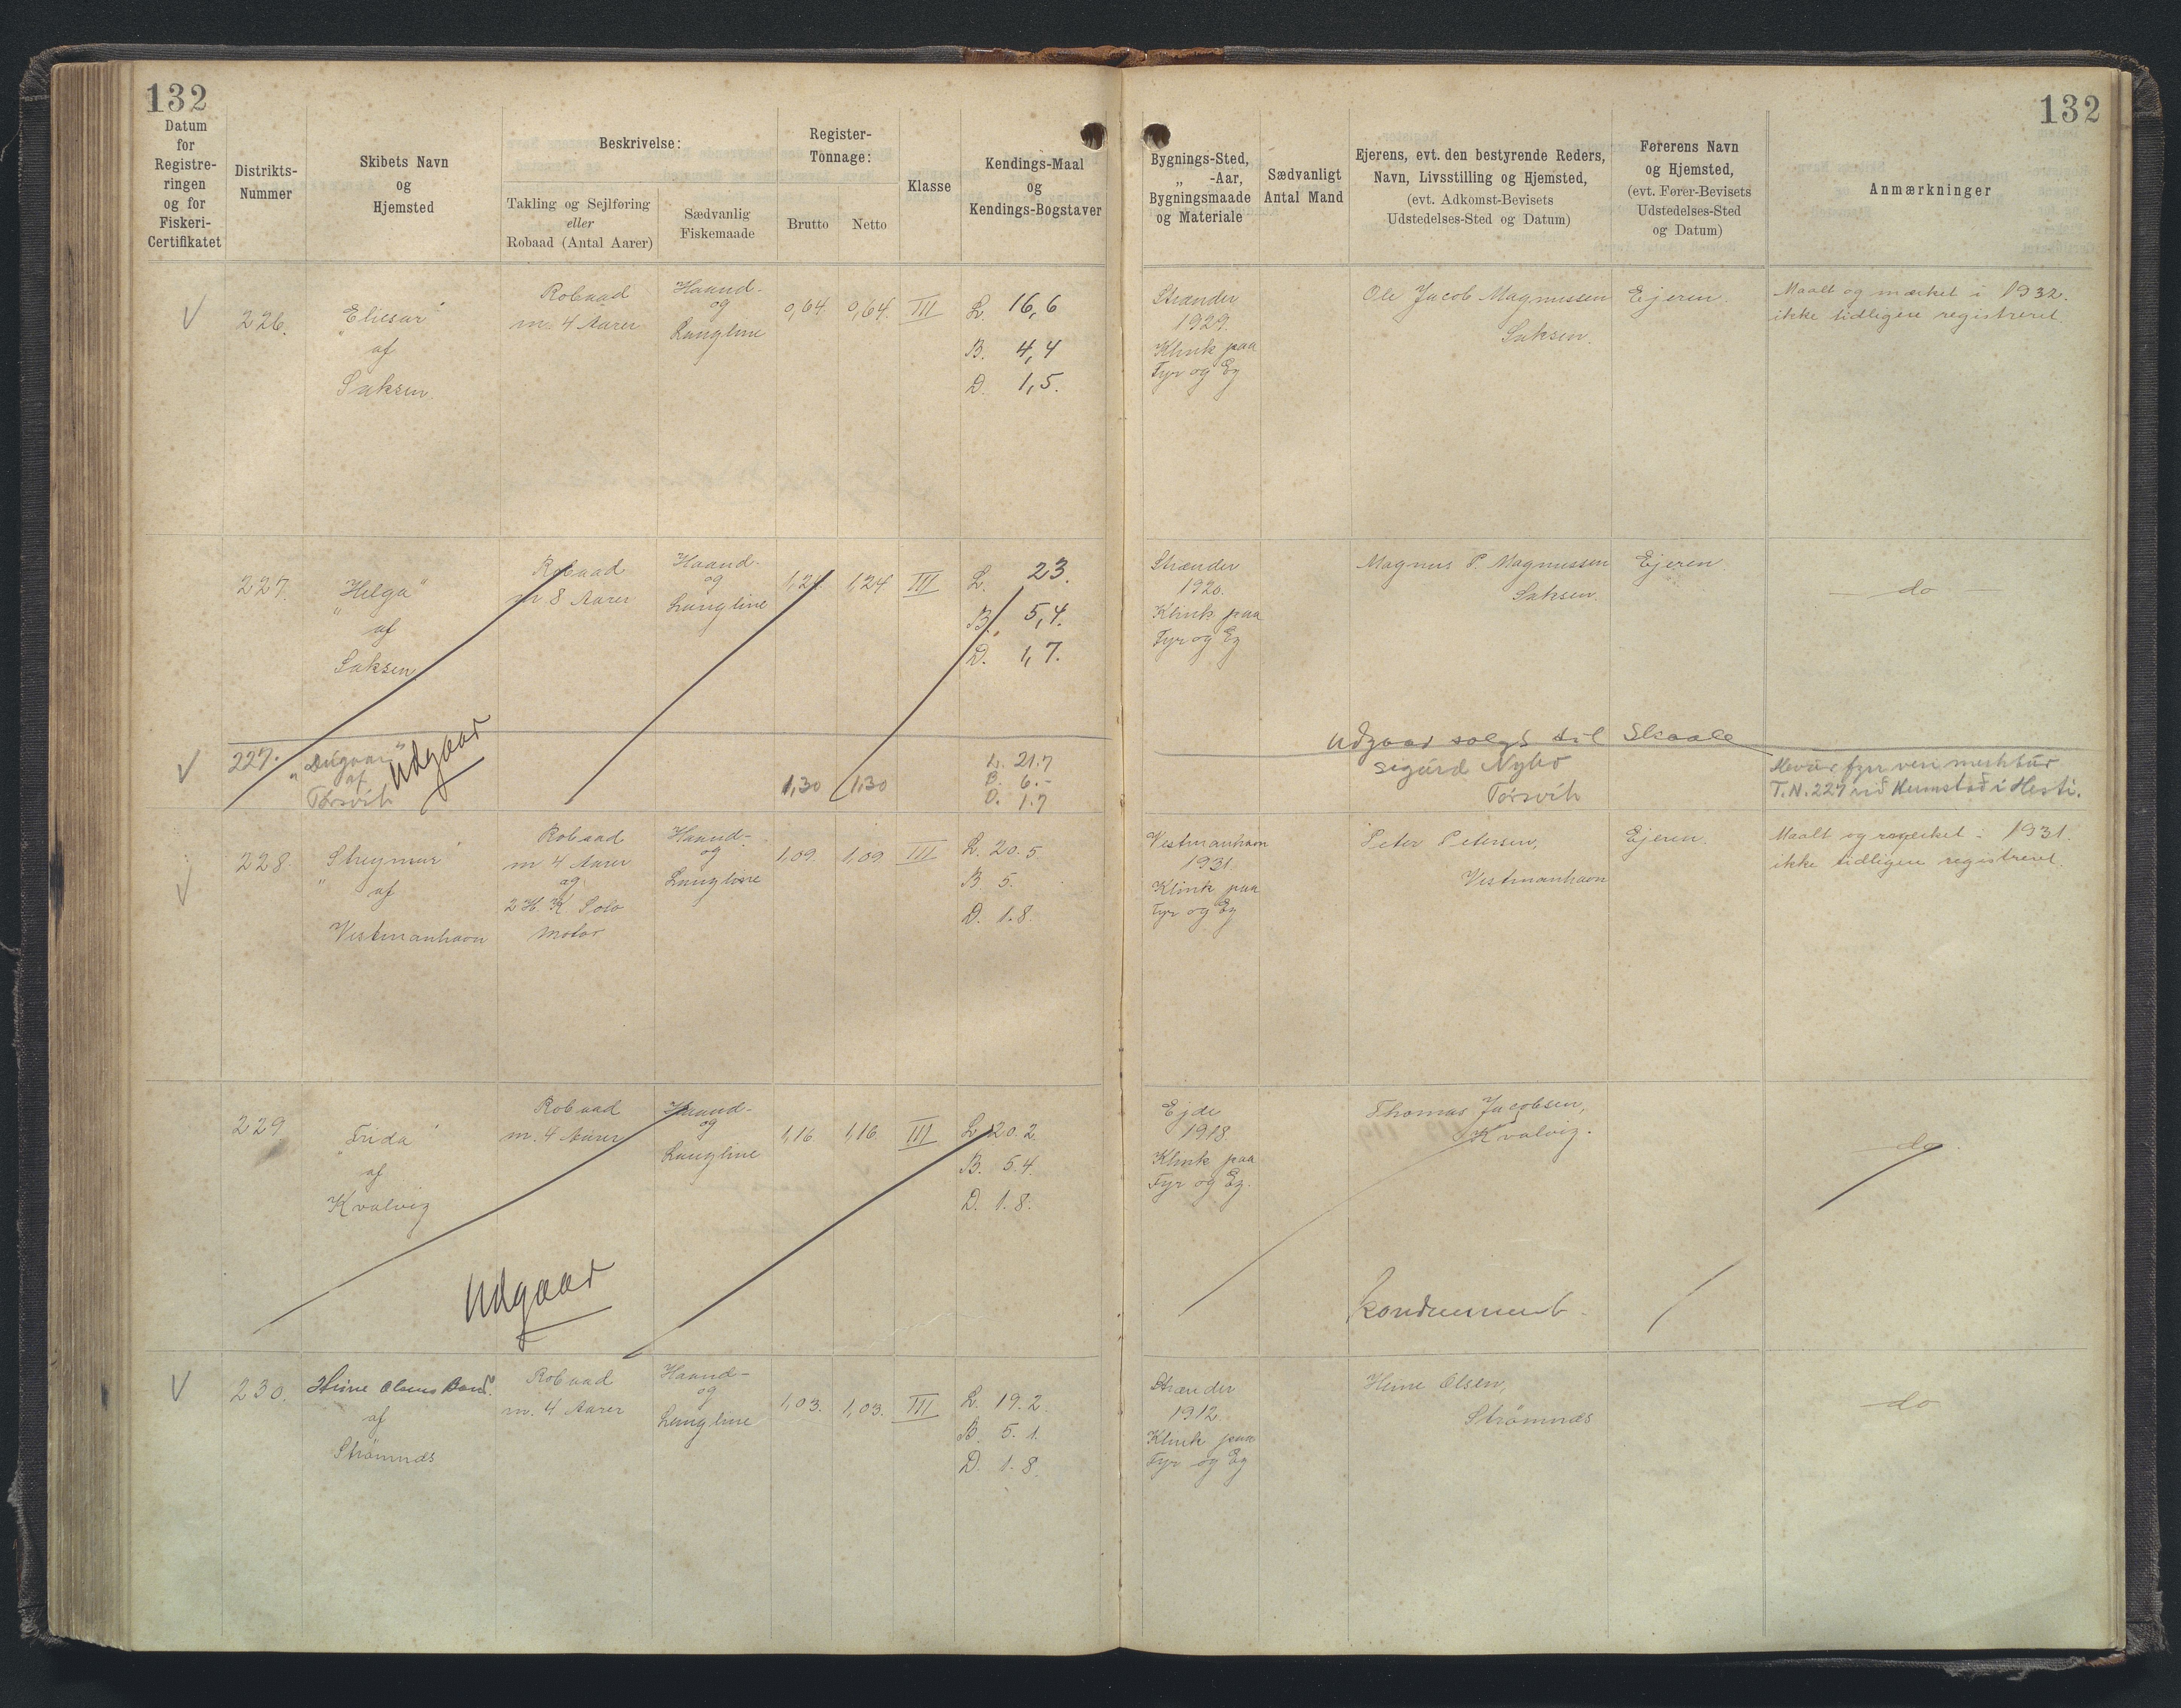 132
132
Datum
for
Registre-
ringen
og for
Fiskeri-
Certifikatet
Distrikts-
Nummer
Skibets Navn
og
Hjemsted
Beskrivelse:
Takling og Sejlføring
eller
Robaad (Antal Aarer)
Sædvanlig
Fiskemaade
Register-
Tonnage:
Brutto
Netto
Klasse
Kendings-Maal
og
Kendings-Bogstaver
Bygnings-Sted,
„ -Aar,
Bygningsmaade
og Materiale
Sædvanligt
Antal Mand
Ejerens, evt. den bestyrende Reders,
Navn, Livsstilling og Hjemsted,
(evt. Adkomst-Bevisets
Udstedelses-Sted og Datum)
Førerens Navn
og Hjemsted,
(evt. Fører-Bevisets
Udstedelses-Sted
og Datum)
Anmærkninger
V
226.
"Eliesar"
af
Saksen
Robaad
m. 4 Aarer
Haand-
og
Langline
0,64
0,64
III
L. 16,6
B. 4,4
D. 1,5.
Strænder
1929.
Klink paa
Fyr og Eg
Ole Jacob Magnussen
Saksen.
Ejeren
Maalt og mærket i 1932.
ikke tidligere registreret.
227.
"Helga"
af
Saksen
Robaad
m 8 Aarer
Haand-
og
Langline
1,24
1,24
III
L. 23.
B. 5,4.
D. 1,7.
Strænder
1920.
Klink paa
Fyr og Eg
Magnus P. Magnussen
Saksen.
Ejeren
— do —
Udgaar solgt til Skaale
V
227.
af
Tórsvík
Udgaar
1,30
1,30
L. 21.7
B. 6.-
D. 1.7
Sigurd Nybo
Tórsvík
T.N. 227 við Heimstað í Hesti.
V
228.
"Streymur"
af
Vestmanhavn
Robaad
m 4 Aarer
og
2 H K Solo
Motor
Haand-
og
Langline
1,09.
1,09
III
L. 20.5
B. 5.
D. 1.8.
Vestmanhavn
1931.
Klink paa
Fyr og Eg
Peter Petersen,
Vestmanhavn
Ejeren
Maalt og mærket i 1931.
ikke tidligere registreret.
229
"Frida"
af
Kvalvig
Robaad
m. 4 Aarer
Haand-
og
Langline
1,16
1,16
III
L. 20.2
B. 5.4.
D. 1.8.
Ejde
1918
Klink paa
Fyr og Eg.
Thomas Jacobsen,
Kvalvig.
do
Udgaar
Kondemneret
V
230.
Heine Olsens Baad
af
Strømnæs
Robaad
m. 4 Aarer
Haand-
og
Langline
1,03.
1,03.
III
L. 19.2.
B. 5.1.
D. 1.8.
Strænder
1912.
Klink paa
Fyr og Eg
Heine Olsen,
Strømnæs
do